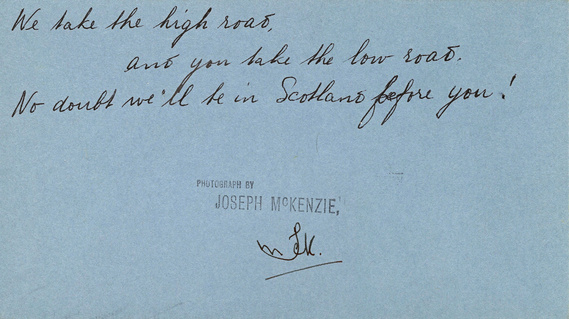 We take the high road,
and you take the low road.
No doubt we'll be in Scotland before you!
PHOTOGRAPH BY
JOSEPH McKENZIE,